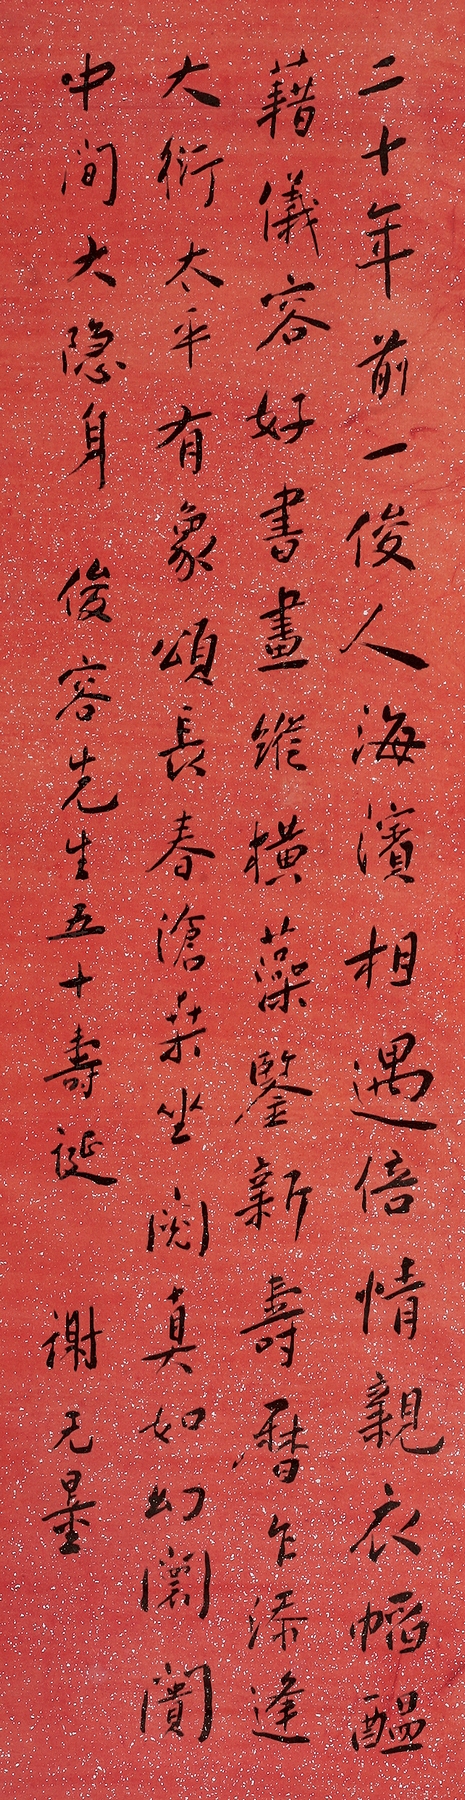 二十年前一俊人海濱相遇倍情親衣幍醞
藉儀容好書畫縱橫藻鑒新壽曆乍添逢
大衍太平有象頌長春滄桑坐閱真如幻闤闠
中间大隐身 俊容先生五十壽誕 谢无量